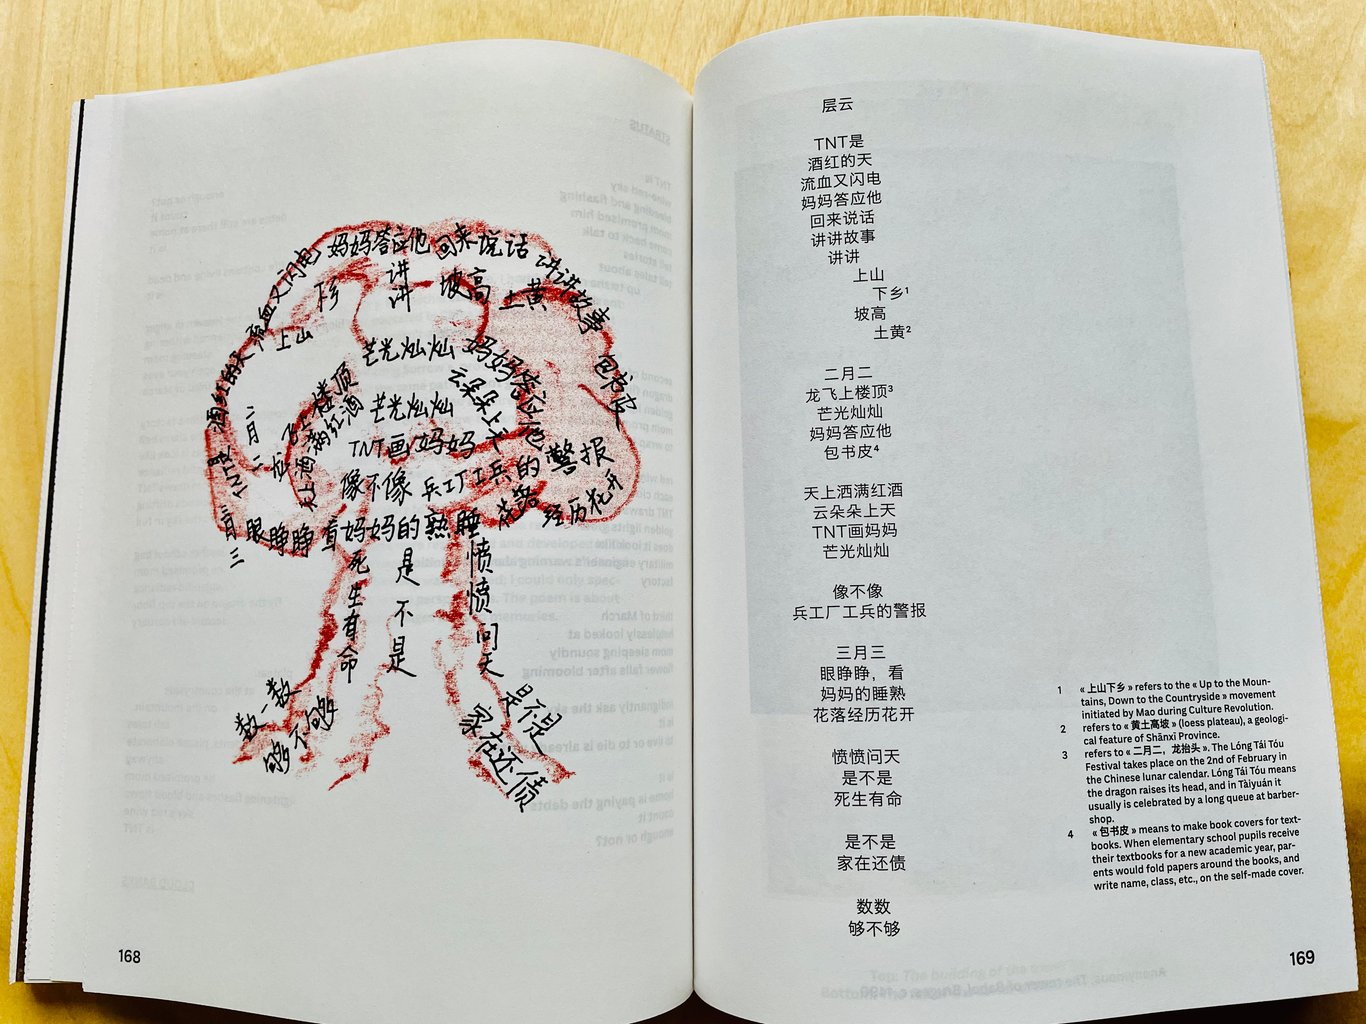 妈妈答应他 回来说话 讲讲故事
流血又闪电
酒红的天
TNT是
上山
下乡
讲讲
坡高
土黄
包书皮
二月二
龙飞上楼顶
芒光灿灿 妈妈答应他
天上洒满红酒
云朵朵上天
芒光灿灿
TNT画妈妈
像不像 兵工厂工兵的警报
三月三
眼睁睁 看妈妈的熟睡 花落 经历花开
愤愤问天
是不是
死生有命
是不是
家在还债
数一数
够不够
168
层云
TNT是
酒红的天
流血又闪电
妈妈答应他
回来说话
讲讲故事
讲讲
上山
下乡¹
坡高
土黄²
二月二
龙飞上楼顶³
芒光灿灿
妈妈答应他
包书皮⁴
天上洒满红酒
云朵朵上天
TNT画妈妈
芒光灿灿
像不像
兵工厂工兵的警报
三月三
眼睁睁，看
妈妈的睡熟
花落经历花开
愤愤问天
是不是
死生有命
是不是
家在还债
数数
够不够
1 «上山下乡» refers to the « Up to the Moun-
tains, Down to the Countryside » movement
initiated by Mao during Culture Revolution.
2 refers to « 黄土高坡 » (loess plateau), a geologi-
cal feature of Shānxī Province.
3 refers to « 二月二，龙抬头 ». The Lóng Tái Tóu
Festival takes place on the 2nd of February in
the Chinese lunar calendar. Lóng Tái Tóu means
the dragon raises its head, and in Tàiyuán it
usually is celebrated by a long queue at barber-
shop.
4 « 包书皮 » means to make book covers for text-
books. When elementary school pupils receive
their textbooks for a new academic year, par-
ents would fold papers around the books, and
write name, class, etc., on the self-made cover.
169